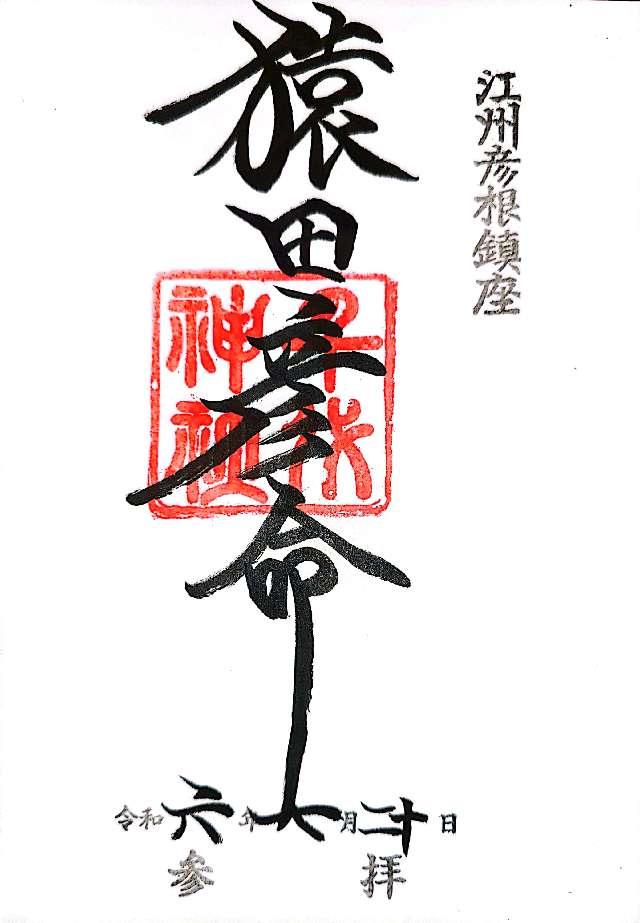 江州彦根鎮座
猿田彦命
千代
神社
令和六年七月二十日
参拝